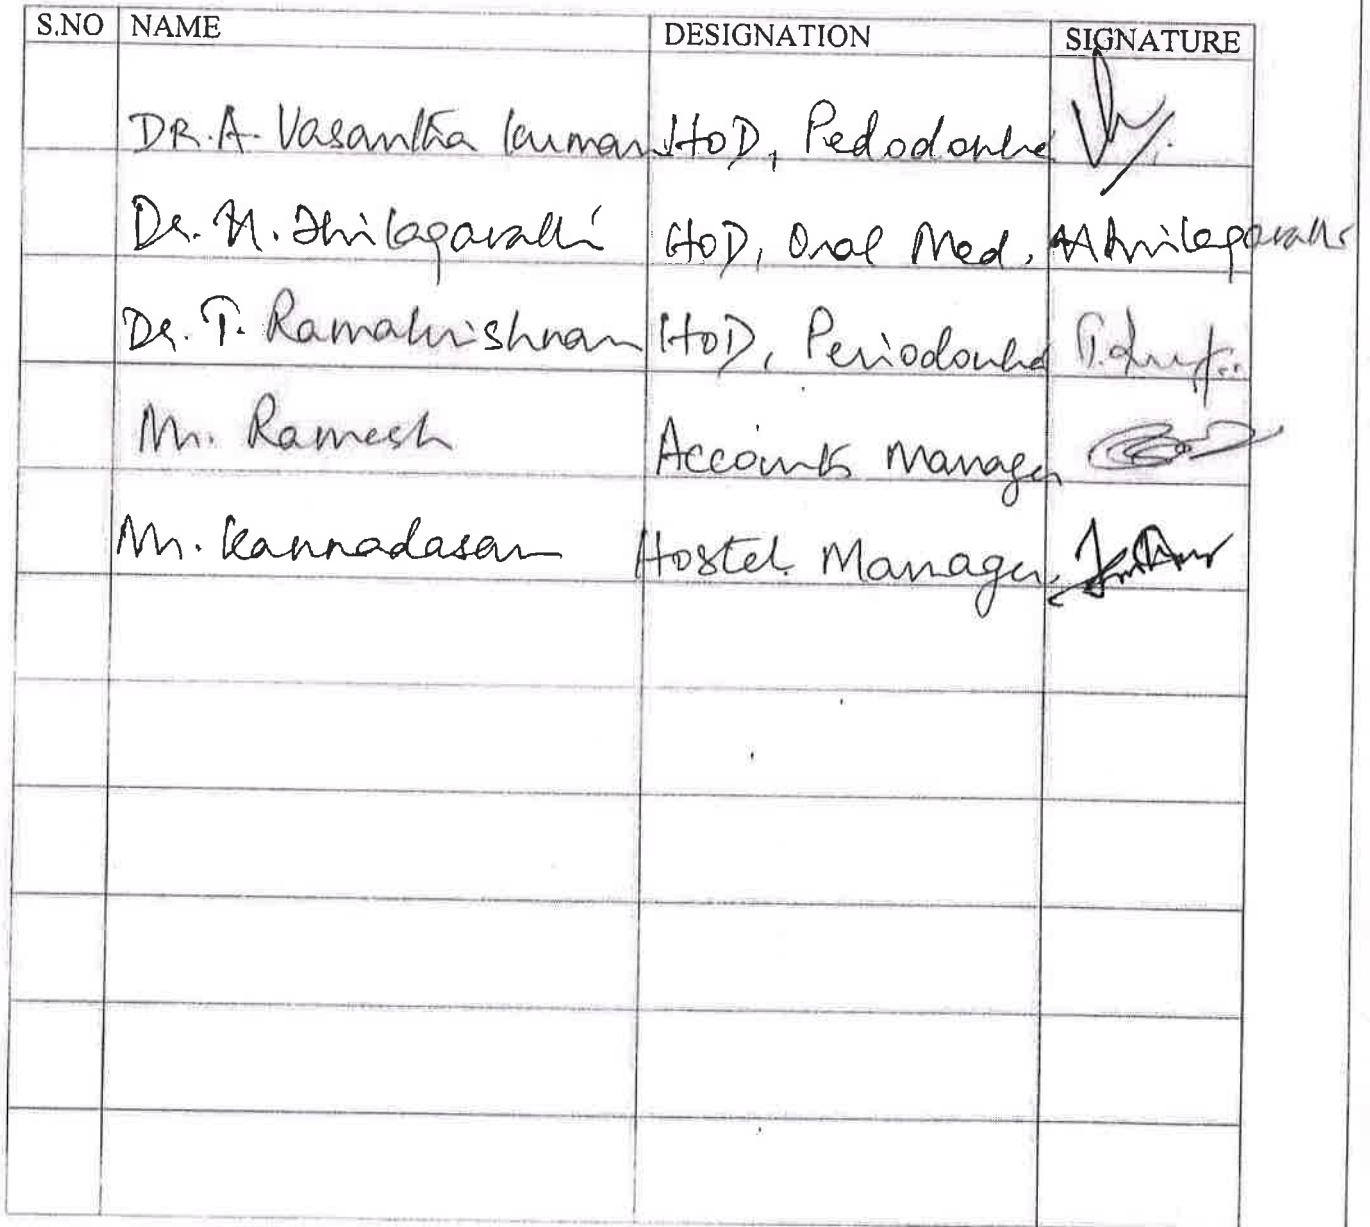 S.NO NAME DESIGNATION SIGNATURE
DR. A. Vasantha Kumar HOD, Pedodontia
Dr. M. Thilagavathi HOD, Oral Med. M Thilagavathi
Dr. T. Ramakrishnan HOD, Periodontia
Mr. Ramesh Accounts Manager
Mr. Kannadasan Hostel Manager